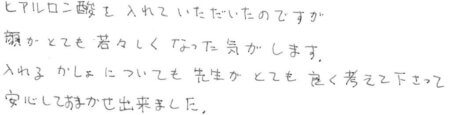 ヒアルロン酸を入れていただいたのですが
顔がとても若々しくなった気がします.
入れるかしょについても先生がとても良く考えて下さって
安心しておまかせ出来ました.